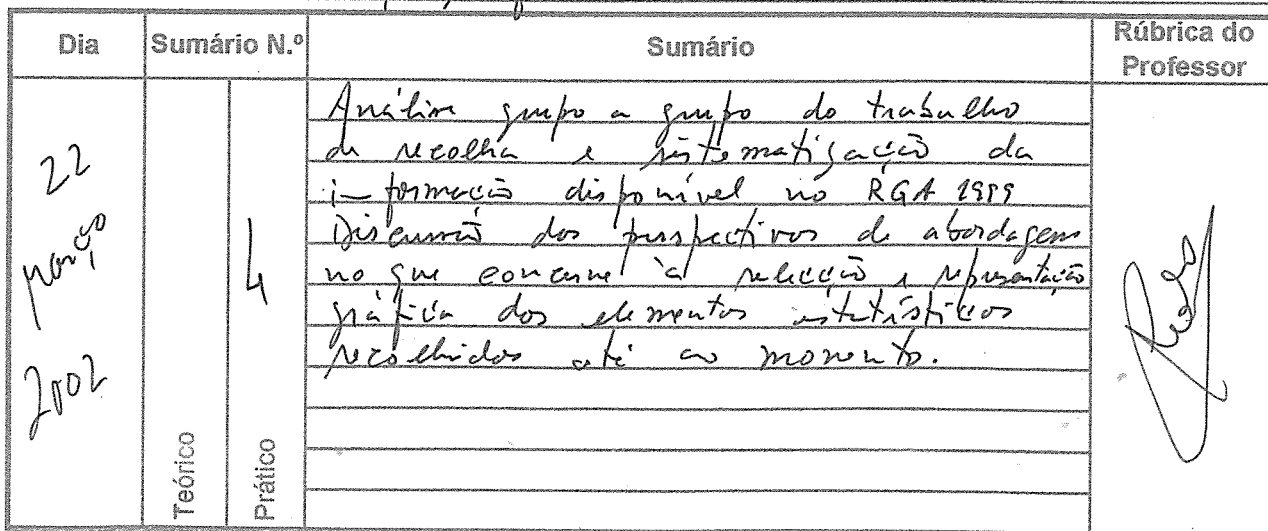 Dia Sumário N.º Sumário Rúbrica do Professor
22
março
2002
4
Análise grupo a grupo do trabalho
de recolha e sistematização da
informação disponível no RGA 1999
Discussão das perspectivas de abordagem
no que concerne à selecção e representação
gráfica dos elementos estatísticos
recolhidos até ao momento.
Teórico
Prático